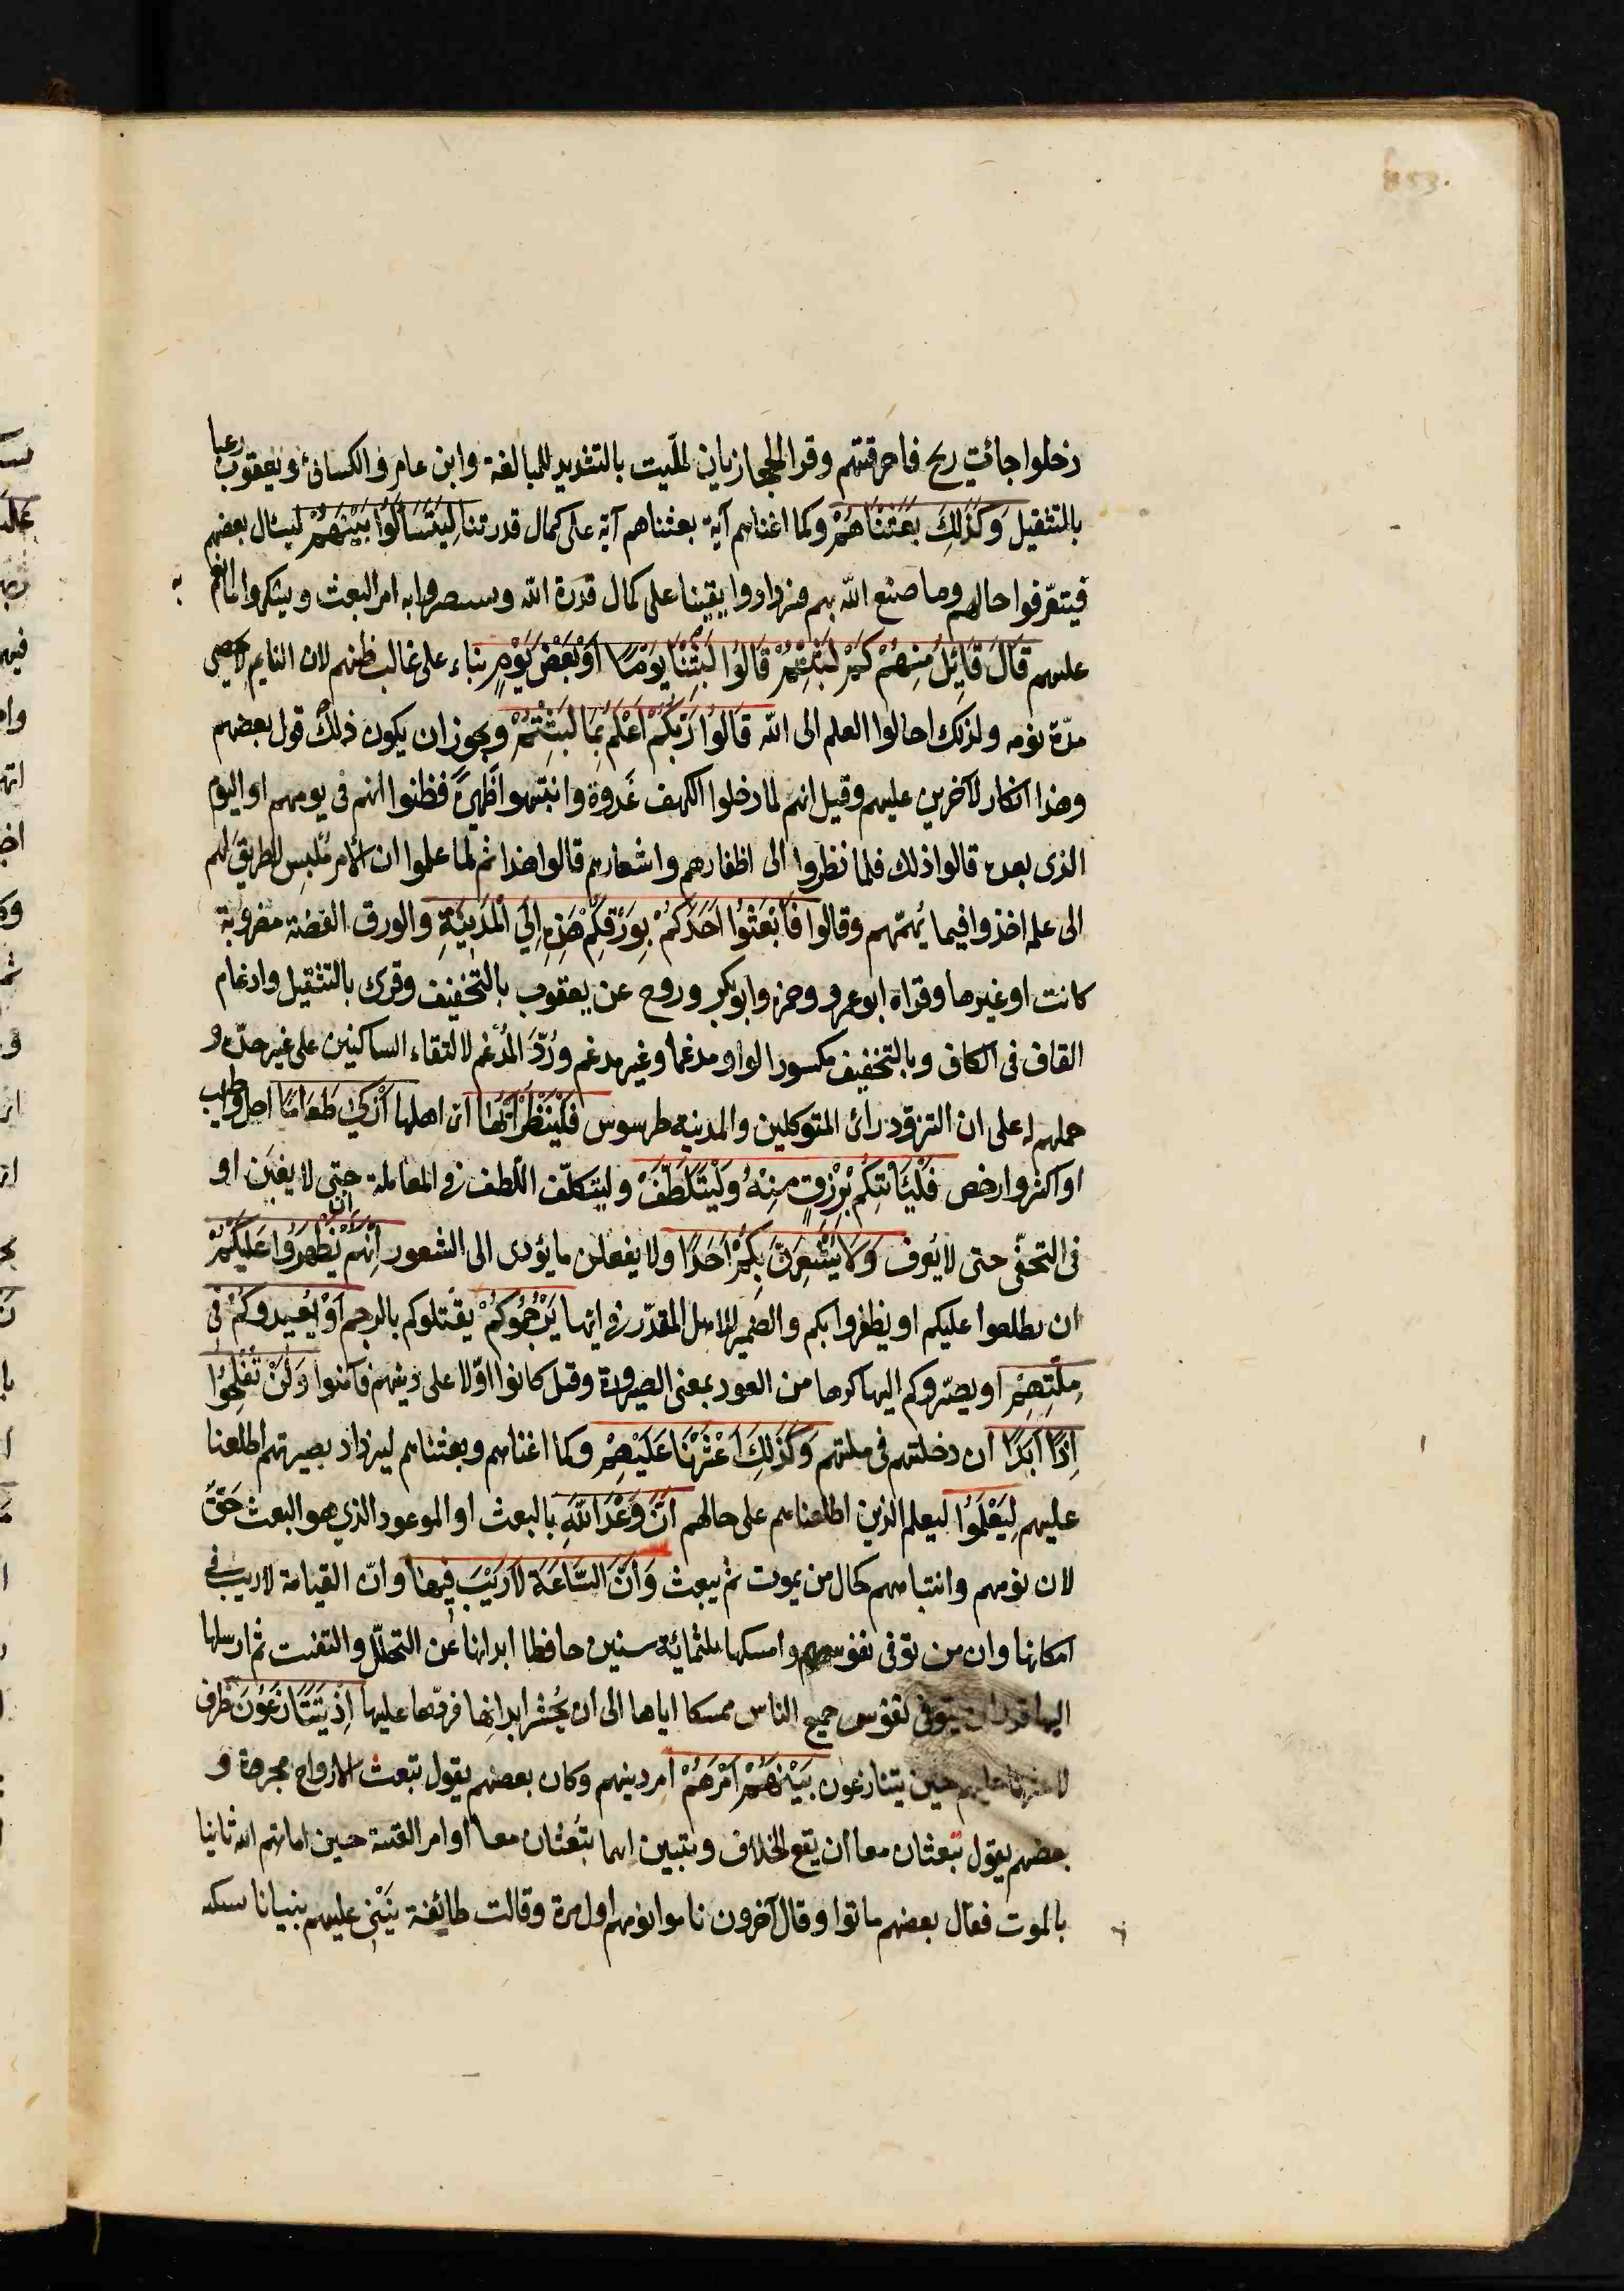 853.
دخلوا جائت ريح فاحرقتهم وقرا الحجازيان لملّيت بالتشديد للمبالغة وابن عامر والكسائى ويعقوب رعبا
بالتثقيل وَكَذَلِكَ بَعَثْنَاهُمْ وكما اغناهم آية بعثناهم آية على كمال قدرتنا لِيَتَسَاَلُوا بَيْنَهُمْ ليسال بعضهم
فيتعرّفوا حالهم وما صنع الله بهم فيزدادوا يقينا على كمال قدرة الله ويستبصروا به امر البعث ويشكروا ما انعم به
عليهم قَالَ قَائِلٌ مِنْهُمْ كَمْ لَبِثْتُمْ قَالُوا لَبِثْنَا يَوْمًا اَوْ بَعْضَ يَوْمٍ بناء على غالب ظنهم لان النايم لا يحصى
مدّة نومه ولذلك احالوا العلم الى الله قَالُوا رَبُّكُمْ اَعْلَمُ بِمَا لَبِثْتُمْ ويجوز ان يكون ذلك قول بعضهم
وهذا انكار الآخرين عليهم وقيل انهم لما دخلوا الكهف غَدوة وانتبهوا ظَهيرةً فظنوا انهم فى يومهم او اليوم
الذى بعده قالوا ذلك فلما نظروا الى اظفارهم واشعارهم قالوا هذا ثم لما علموا ان الامر ملبس لا طريق لهم
الى علمه اخذوا فيما يُهمّهم وقالوا فَابْعَثُوا اَحَدَكُمْ بِوَرِقِكُمْ هَذِهِ اِلَى الْمَدِينَةِ والورق الفضة مضروبة
كانت او غيرها وقراه ابو عمرو وحمزه وابو بكر وروح عن يعقوب بالتخفيف وقرئ بالتثقيل وادغام
القاف فى الكاف وبالتخفيف مكسور الواو مدغما وغير مدغم ورُدّ المُدغم لالتقاء الساكنين على غير حدّه و
حملهم له على ان التزوّد راى المتوكلين والمدينة طرسوس فَلْيَنْظُرْ اَيُّهَا اىّ اهلها اَزْكَى طَعَامًا احل واطيب
او اكثر وارخص فَلْيَأْتِكُمْ بِرِزْقٍ مِنْهُ وَلْيَتَلَطَّفْ وليتكلّف اللّطف فى المعاملة حتى لا يغبن او
فى التخفّى حتى لا يعرف وَلَا يُشْعِرَنَّ بِكُمْ اَحَدًا ولا يفعلن ما يؤدى الى الشعور اِنَّهُمْ اِنْ يَظْهَرُوا عَلَيْكُمْ
ان يطلعوا عليكم او يظفروا بكم والضمير للاهل المقدّر فى ايها يَرْجُمُوكُمْ يقتلوكم بالرجم اَوْ يُعِيدُوكُمْ فِى
مِلَّتِهِمْ او يصيّروكم اليها كرها من العود بمعنى الصيرورة وقيل كانوا اوّلا على دينهم فآمنوا وَلَنْ تُفْلِحُوا
اِذًا اَبَدًا ان دخلتم فى ملتهم وَكَذَلِكَ اَعْثَرْنَا عَلَيْهِمْ وكما اغناهم وبعثناهم ليزداد بصيرتهم اطلعنا
عليهم لِيَعْلَمُوا ليعلم الذين اطلعناهم على حالهم اَنَّ وَعْدَ اللّهِ بالبعث او الموعود الذي هو البعث حَقٌّ
لان نومهم وانتباههم كحال من يموت ثم يبعث وَاَنَّ السَّاعَةَ لَا رَيْبَ فِيهَا وانّ القيامة لا ريب فى
امكانها وان من توفى نفوسهم وامسكها ثلثمائة سنين حافظا ابدانها عن التحلّل والتفتت ثم ارسلها
اليها قدر ان يتوفى نفوس جميع الناس ممسكا اياها الى ان يحشر ابدانها فردّها عليها اِذْ يَتَنَازَعُونَ ظرف
لاعثرنا عليهم حين يتنازعون بَيْنَهُمْ اَمْرَهُمْ امر دينهم وكان بعضهم يقول تبعث الارواح مجردة و
بعضهم يقول تبعثان معا ان يقع الخلاف ويتبين انهما تبعثان معا او امر الفتية حين اماتهم الله ثانيا
بالموت فقال بعضهم ماتوا وقال آخرون ناموا نومهم اول مرة وقالت طائفة نبنى عليهم بنيانا يسكنه